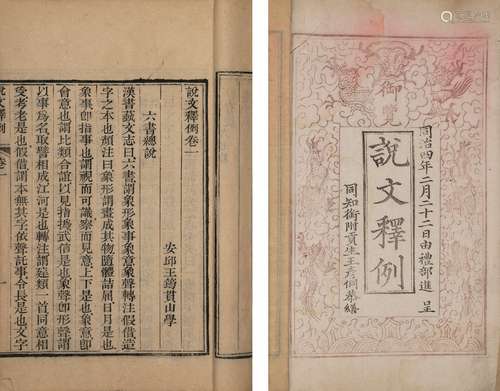 說文釋例卷一
安邱王筠貫山學
六書總說
漢書藝文志曰六書謂象形象事象意象聲轉注假借造
字之本也顏注曰象形謂畫成其物隨體詰屈日月是也
象事卽指事也謂視而可識察而見意上下是也象意卽
會意也謂比類合誼以見指撝武信是也象聲卽形聲謂
以事爲名取譬相成江河是也轉注謂建類一首同意相
受考老是也假借謂本無其字依聲託事令長是也文字
說文釋例 卷一
御覽
同治四年二月二十二日由禮部進呈
說文釋例
同知銜附貢生王彥侗恭繕